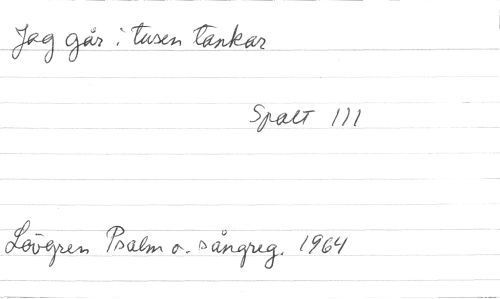 Jag går i tusen tankar
Spalt 111
Lövgren Psalm o. sångreg. 1964